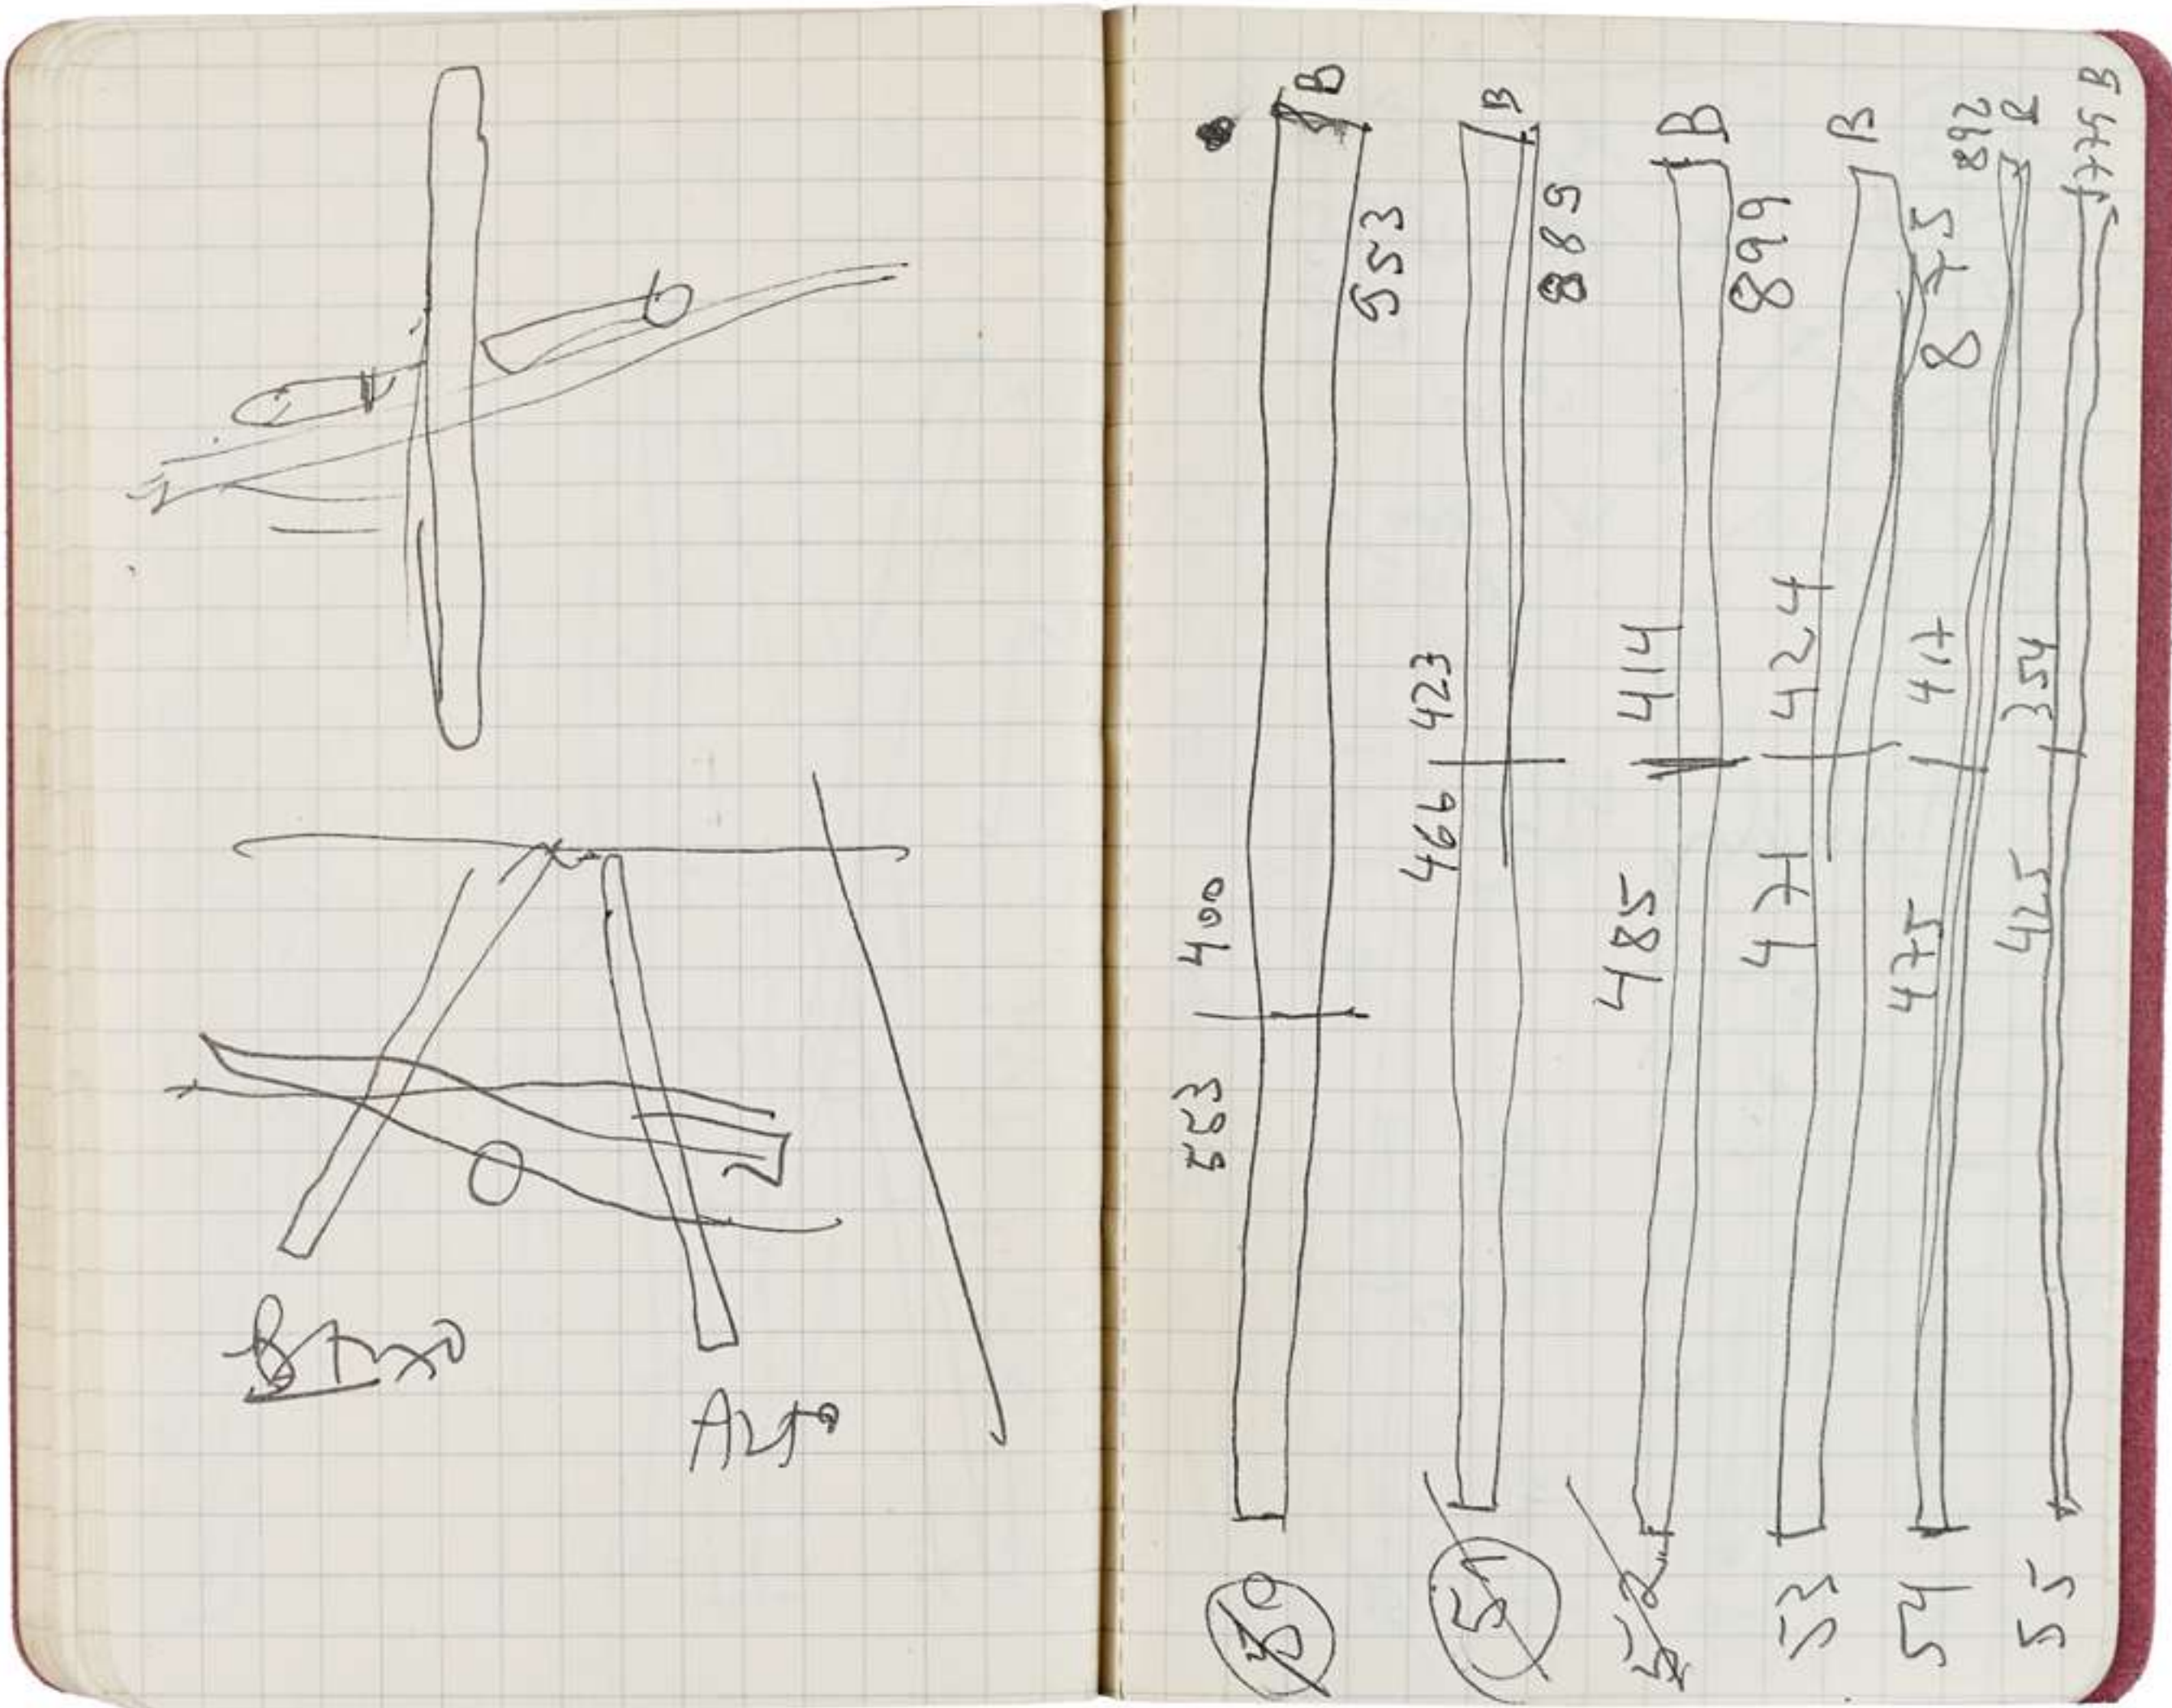 Alto
50 553 400 953 B
51 466 423 889 B
52 485 414 899 B
53 471 424 875 B
54 475 417 892 B
55 425 354 779 B